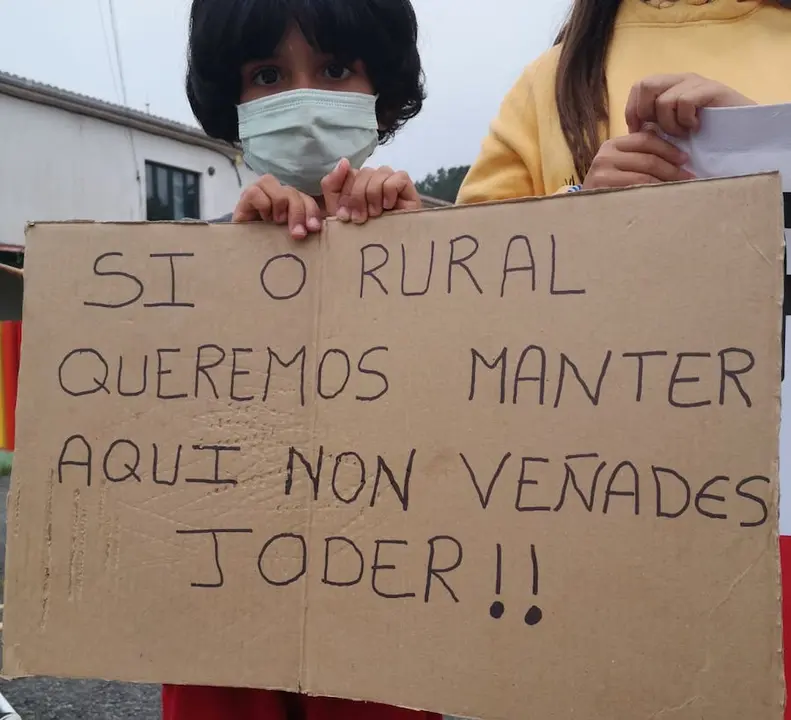 SI O RURAL
QUEREMOS MANTER
AQUI NON VEÑADES
JODER!!